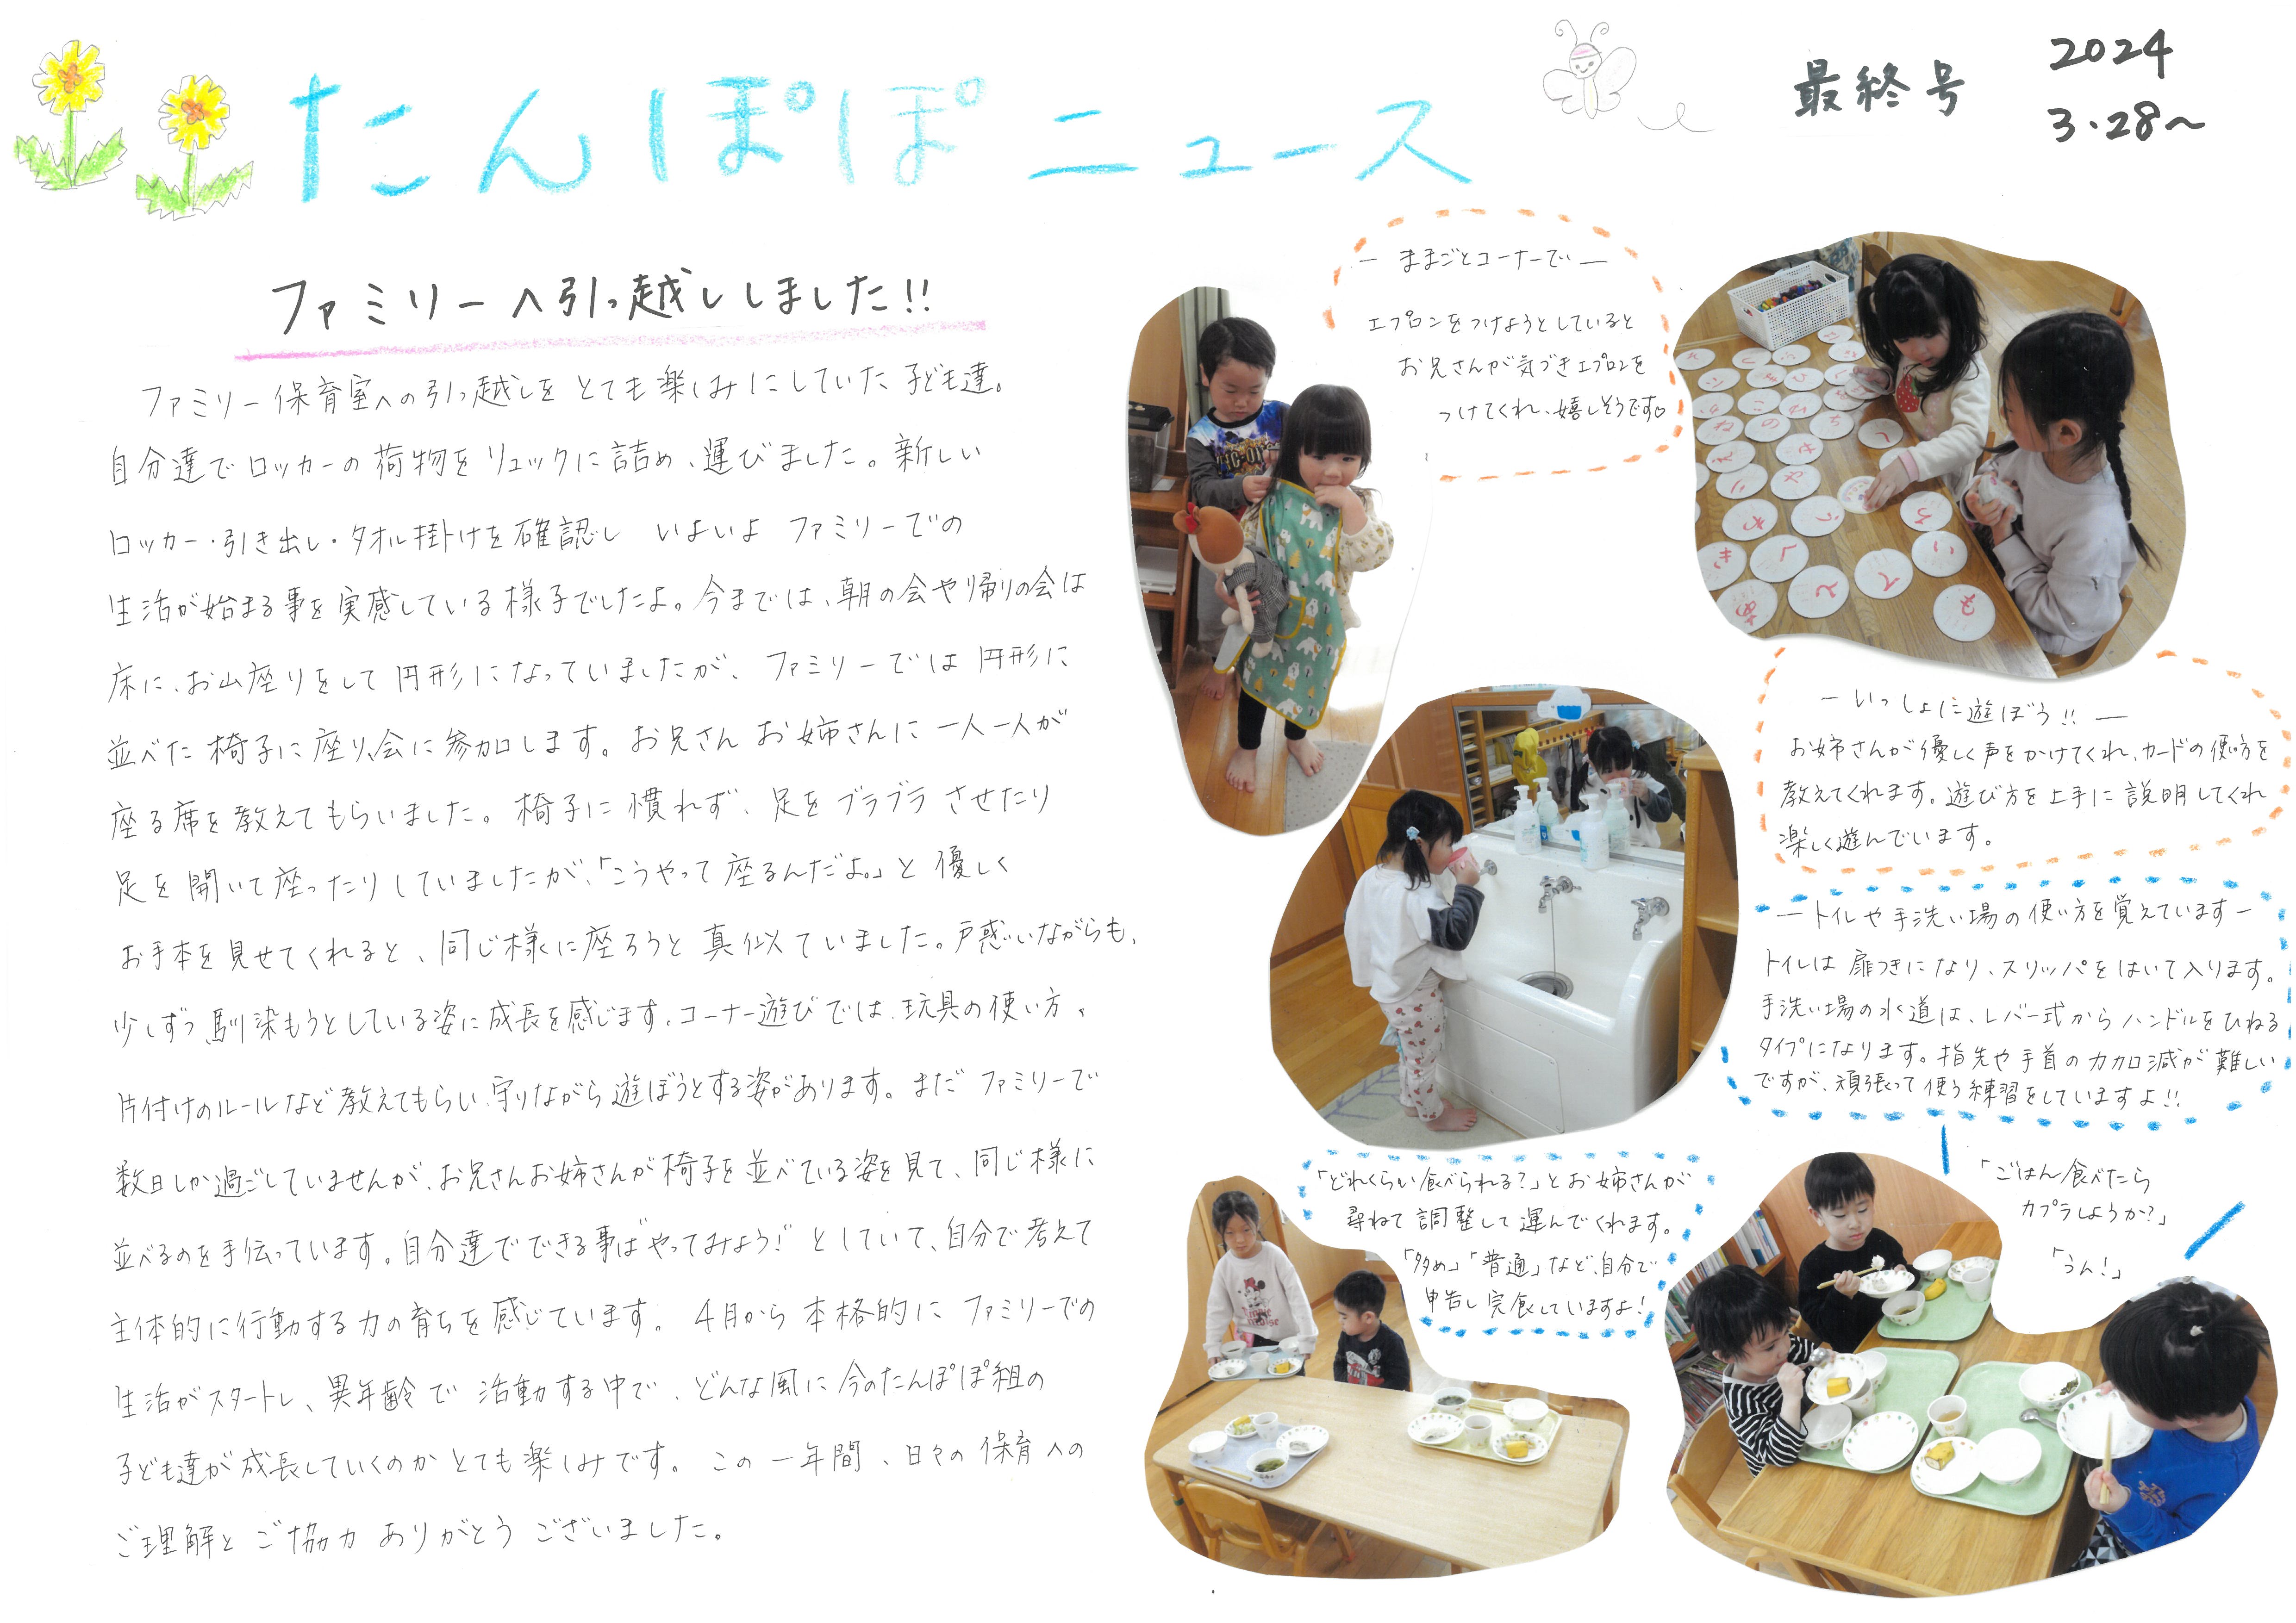 たんぽぽニュース
最終号
2024
3.28〜
ファミリーへ引っ越ししました!!
ファミリー保育室への引っ越しをとても楽しみにしていた子ども達。
自分達でロッカーの荷物をリュックに詰め、運びました。新しい
ロッカー・引き出し・タオル掛けを確認し いよいよ ファミリーでの
生活が始まる事を実感している様子でしたよ。今までは、朝の会や帰りの会は
床に、お山座りをして円形になっていましたが、ファミリーでは円形に
並べた椅子に座り、会に参加します。お兄さんお姉さんに一人一人が
座る席を教えてもらいました。椅子に慣れず、足をブラブラさせたり
足を開いて座ったりしていましたが、「こうやって座るんだよ。」と優しく
お手本を見せてくれると、同じ様に座ろうと真似ていました。戸惑いながらも、
少しずつ馴染もうとしている姿に成長を感じます。コーナー遊びでは、玩具の使い方、
片付けのルールなど教えてもらい、守りながら遊ぼうとする姿があります。まだファミリーで
数日しか過ごしていませんが、お兄さんお姉さんが椅子を並べている姿を見て、同じ様に
並べるのを手伝っています。自分達でできる事はやってみよう!としていて、自分で考えて
主体的に行動する力の育ちを感じています。4月から本格的にファミリーでの
生活がスタートし、異年齢で活動する中で、どんな風に今のたんぽぽ組の
子ども達が成長していくのかとても楽しみです。この一年間、日々の保育への
ご理解とご協力ありがとうございました。
ーままごとコーナーでー
エプロンをつけようとしていると
お兄さんが気づきエプロンを
つけてくれ、嬉しそうです♡
ーいっしょに遊ぼう!!ー
お姉さんが優しく声をかけてくれ、カードの使い方を
教えてくれます。遊び方を上手に説明してくれ
楽しく遊んでいます。
ートイレや手洗い場の使い方を覚えていますー
トイレは扉つきになり、スリッパをはいて入ります。
手洗い場の水道は、レバー式からハンドルをひねる
タイプになります。指先や手首の力加減が難しい
ですが、頑張って使う練習をしていますよ!!
「どれくらい食べられる?」とお姉さんが
尋ねて調整して運んでくれます。
「多め」「普通」など、自分で
申告し完食していますよ!
「ごはん食べたら
カプラしようか?」
「うん!」
も
て
と
く
い
う
ひ
へ
き
ち
の
ね
や
せ